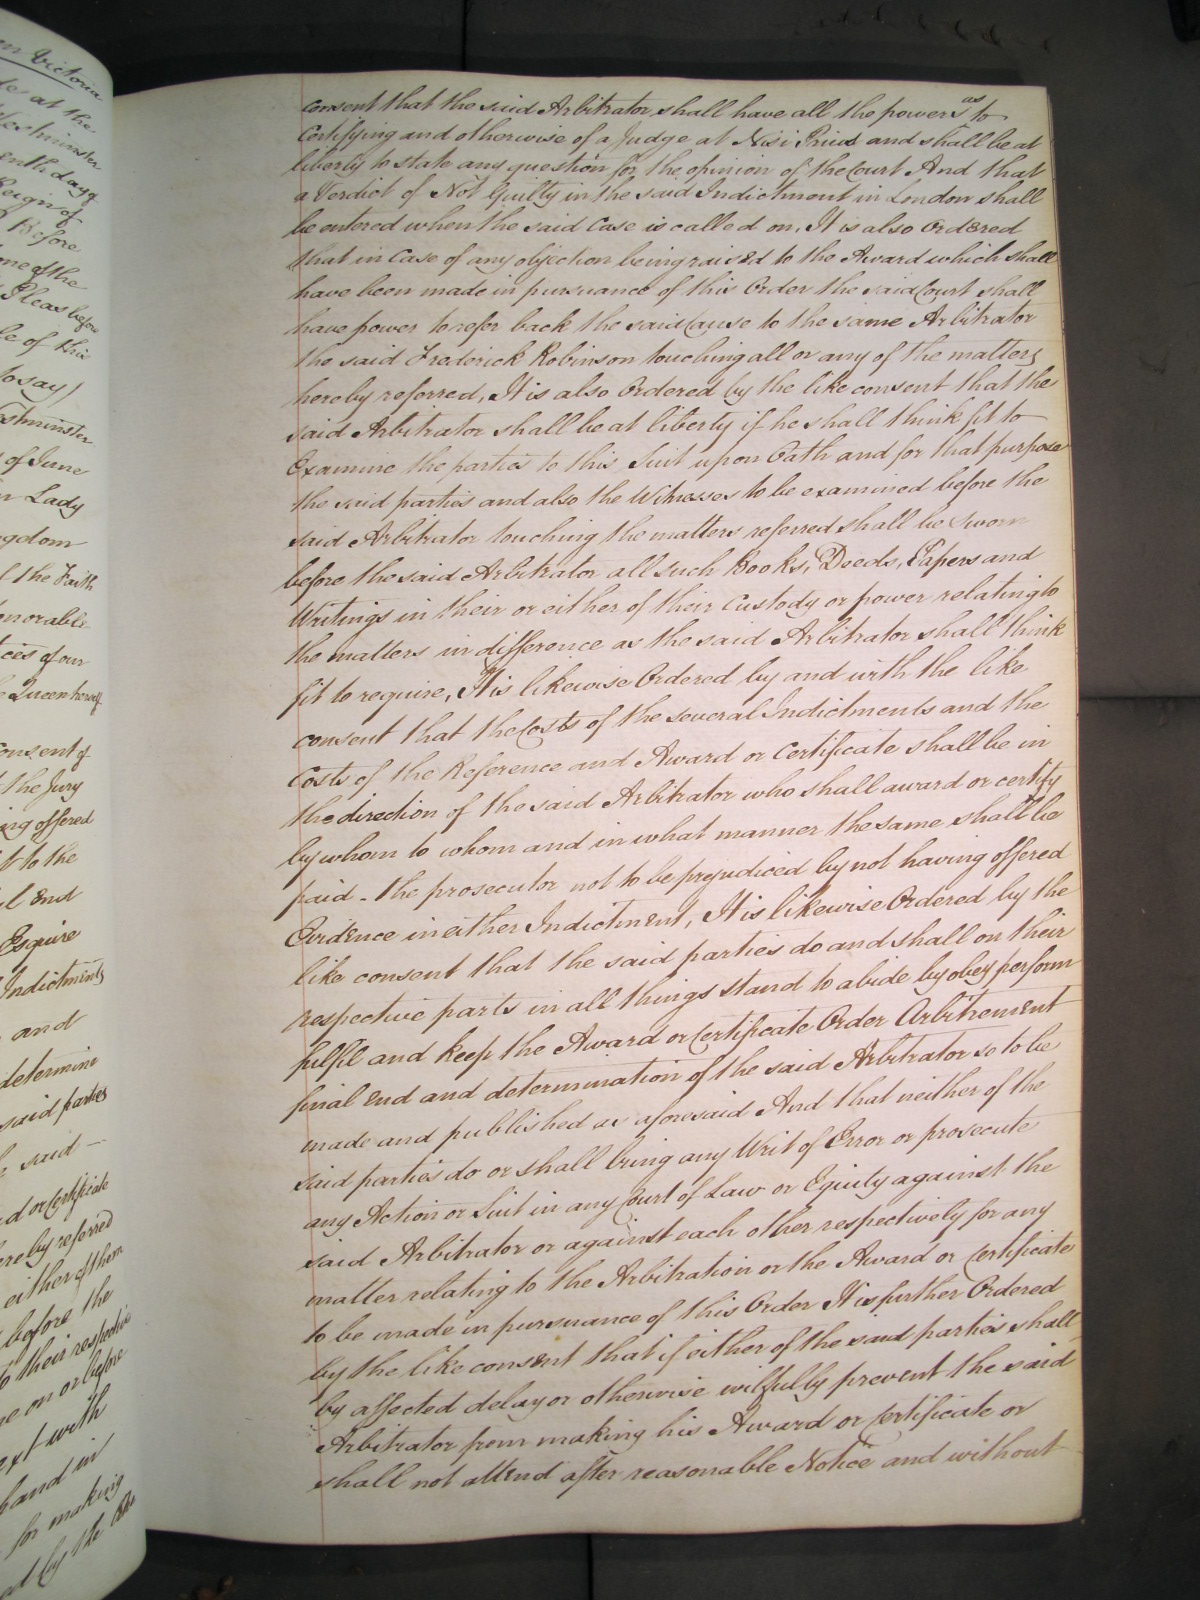 en Victoria
de at the
Westminster
enth day of
Reign of
Before
one of the
Pleas before
le of this
to say)
Westminster
of June
n Lady
gdom
the Faith
onorable
ces of our
Queen herself
onsent of
the Jury
ing offered
t to the
l End
Esquire
Indictments
and
determine
said parties
said
d or Certificate
ereby referred
either of them
before the
to their respective
on or before
ext with
hand in
for making
by the
consent that the said Arbitrator shall have all the powers as to
Certifying and otherwise of a Judge at Nisi Prius and shall be at
liberty to state any question for the opinion of the Court And that
a Verdict of Not Guilty in the said Indictment in London shall
be entered when the said Case is called on, It is also Ordered
that in Case of any objection being raised to the Award which shall
have been made in pursuance of this Order the said Court shall
have power to refer back the said Cause to the same Arbitrator
the said Frederick Robinson touching all or any of the matters
hereby referred, It is also Ordered by the like consent that the
said Arbitrator shall be at liberty if he shall think fit to
Examine the parties to this Suit upon Oath and for that purpose
the said parties and also the Witnesses to be examined before the
said Arbitrator touching the matters referred shall be Sworn
before the said Arbitrator all such Books, Deeds, Papers and
Writings in their or either of their Custody or power relating to
the matters in difference as the said Arbitrator shall think
fit to require, It is likewise Ordered by and with the like
consent that the Costs of the several Indictments and the
Costs of the Reference and Award or Certificate shall be in
the direction of the said Arbitrator who shall award or certify
by whom to whom and in what manner the same shall be
paid - the prosecutor not to be prejudiced by not having offered
Evidence in either Indictment, It is likewise Ordered by the
like consent that the said parties do and shall on their
respective parts in all things stand to abide by obey perform
fulfil and keep the Award or Certificate Order Arbitrement
final End and determination of the said Arbitrator so to be
made and published as aforesaid And that neither of the
said parties do or shall bring any Writ of Error or prosecute
any Action or Suit in any Court of Law or Equity against the
said Arbitrator or against each other respectively for any
matter relating to the Arbitration or the Award or Certificate
to be made in pursuance of this Order It is further Ordered
by the like consent that if either of the said parties shall
by affected delay or otherwise wilfully prevent the said
Arbitrator from making his Award or Certificate or
shall not attend after reasonable Notice and without